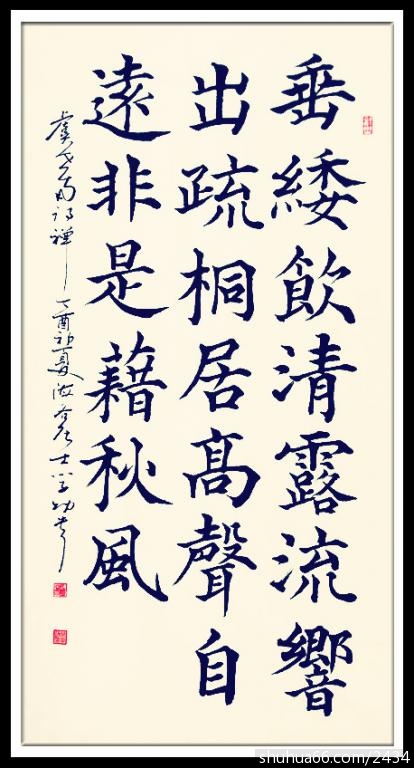 垂緌飲清露流響
出疏桐居髙聲自
遠非是藉秋風
虞世南詩蟬 丁酉初夏 居士
shuhua66.com/2434